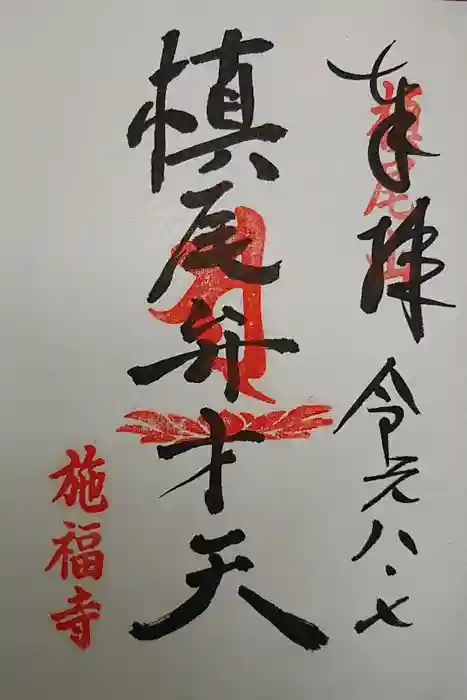 奉拝 令元八・七
槙尾山
槙尾弁才天
施福寺